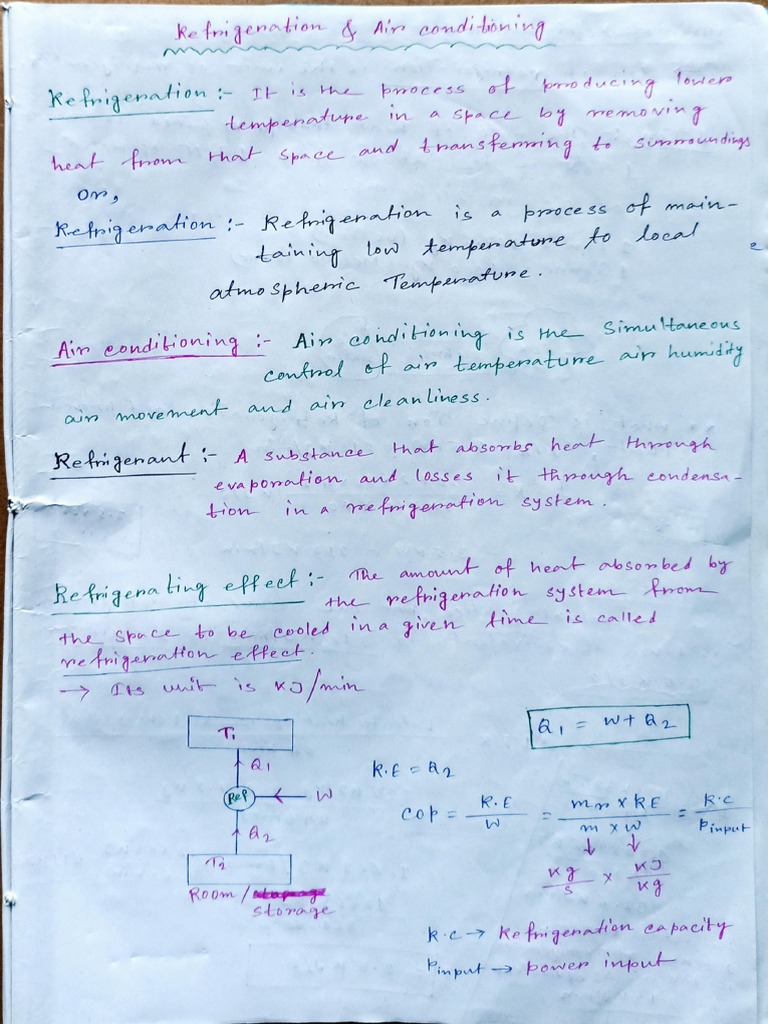 Refrigeration & Air conditioning
Refrigeration :- It is the process of producing lower
temperature in a space by removing
heat from that space and transferring to surroundings
Or,
Refrigeration :- Refrigeration is a process of main-
taining low temperature to local
atmospheric Temperature.
Air conditioning :- Air conditioning is the Simultaneous
control of air temperature air humidity
air movement and air cleanliness.
Refrigerant :- A substance that absorbs heat through
evaporation and losses it through condensa-
tion in a refrigeration system.
Refrigerating effect :- The amount of heat absorbed by
the refrigeration system from
the space to be cooled in a given time is called
refrigeration effect.
→ Its unit is KJ/min
T1
Q1 = W + Q2
Q1
R.E = Q2
Ref
W
COP = R.E / W = mr × RE / m × W = R.C / Pinput
Q2
T2
kg/s × KJ/kg
Room/
storage
R.C → Refrigeration capacity
Pinput → power input